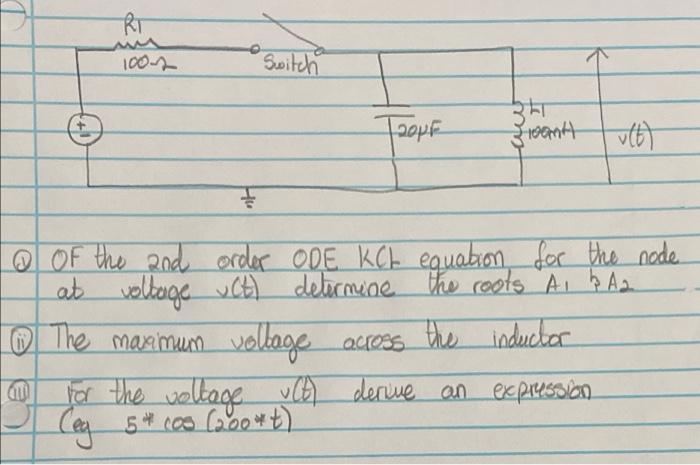 R1
100Ω
Switch
+
-
20μF
L1
100mH
v(t)
(i) OF the 2nd order ODE KCL equation for the node
at voltage v(t) determine the roots A1 & A2
(ii) The maximum voltage across the inductor
(iii) For the voltage v(t) derive an expression
(eg 5* cos (200*t)